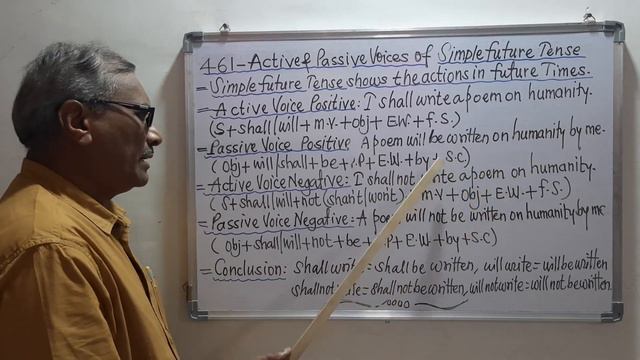 461-Active & Passive Voices of Simple future Tense
= Simple future Tense shows the actions in future Times.
= Active Voice Positive: I shall write a poem on humanity.
(S+shall/will+m.v+obj+E.W+f.S.)
= Passive Voice Positive A poem will be written on humanity by me.
(obj+will/shall+be+ .P+E.W+by+S.C)
= Active Voice Negative: I shall not a poem on humanity.
(S+shall/will+not(shan't/won't) m.v+obj+E.W+f.S)
= Passive Voice Negative: A poem will not be written on humanity by me
(obj+shall/will+not+be+ .P+E.W+by+S.C)
= Conclusion: shall write = shall be written, will write = will be written
shall not = shall not be written, will not write = will not be written.